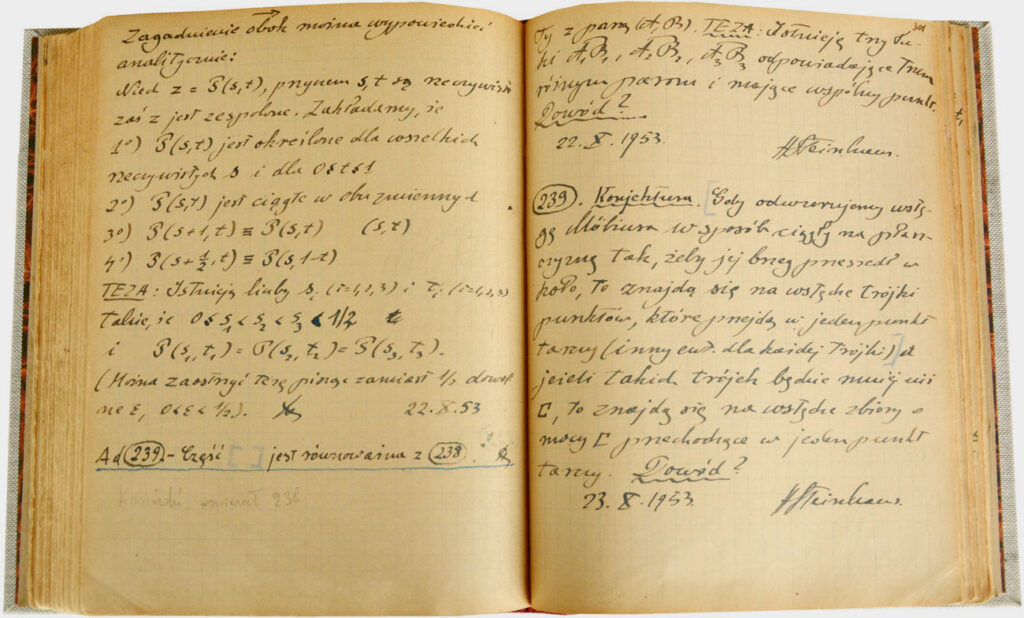 Zagadnienie obok można wypowiedzieć
analitycznie:
Niech z = P(s,t), przyczem s,t są rzeczywiste
zaś z jest zespolone. Zakładamy, że
1°) P(s,t) jest określone dla wszelkich
rzeczywistych s i dla 0≤t≤1
2°) P(s,t) jest ciągłe w obu zmiennych
3°) P(s+1,t) ≡ P(s,t) (s,t)
4°) P(s+½,t) ≡ P(s,1-t)
TEZA: Istnieją liczby sᵢ (i=1,2,3) i tᵢ (i=1,2,3)
takie, że 0≤s₁<s₂<s₃<1/2
i P(s₁,t₁) = P(s₂,t₂) = P(s₃,t₃).
(Można zaostrzyć tezę pisząc zamiast ½ dowol-
ne ε, 0<ε<½). 22.X.53
Ad (239).- Część [ ] jest równoważna z (238).
238
301
Ty z parą (A,B). TEZA: Istnieją trzy łu-
ki A₁B₁, A₂B₂, A₃B₃ odpowiadające trzem
różnym parom i mające wspólny punkt.
Dowód?
22.X.1953. HSteinhaus.
(239). Konjektura. [Gdy odwzorujemy wstę-
gę Möbiusa w sposób ciągły na płasz-
czyznę tak, żeby jej brzeg przeszedł w
koło, to znajdą się na wstędze trójki
punktów, które przejdą w jeden punkt
tarczy (inny ew. dla każdej trójki)] a
jeżeli takich trójek będzie mniej niż
C, to znajdą się na wstędze zbiory o
mocy C przechodzące w jeden punkt
tarczy. Dowód?
23.X.1953. HSteinhaus.